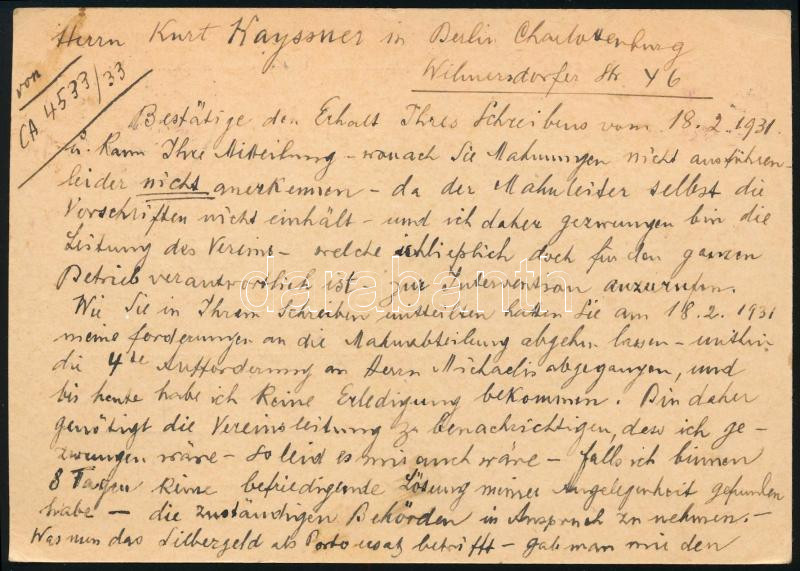 Herrn Kurt Kayssner in Berlin Charlottenburg
Wilmersdorfer Str 46
von
CA 4533/33
Bestätige den Erhalt Ihres Schreibens vom 18.2.1931.
u. kann Ihre Mitteilung – wonach Sie Mahnungen nicht ausführen
leider nicht anerkennen – da der Mahnleiter selbst die
Vorschriften nicht einhält – und ich daher gezwungen bin die
Leitung des Vereins – welche schließlich doch für den ganzen
Betrieb verantwortlich ist – zur Intervention anzurufen.
Wie Sie in Ihrem Schreiben mitteilten hatten Sie am 18.2.1931
meine Forderungen an die Mahnabteilung abgehen lassen – mithin
die 4te Aufforderung an Herrn Michaelis abgegangen, und
bis heute habe ich keine Erledigung bekommen. Bin daher
genötigt die Vereinsleitung zu benachrichtigen, dass ich ge-
zwungen wäre – so leid es mir auch wäre – falls ich binnen
8 Tagen keine befriedigende Lösung meiner Angelegenheit gefunden
habe – die zuständigen Behörden in Anspruch zu nehmen. –
Was nun das Silbergeld als Portoersatz betrifft – gab man mir den
darabanth